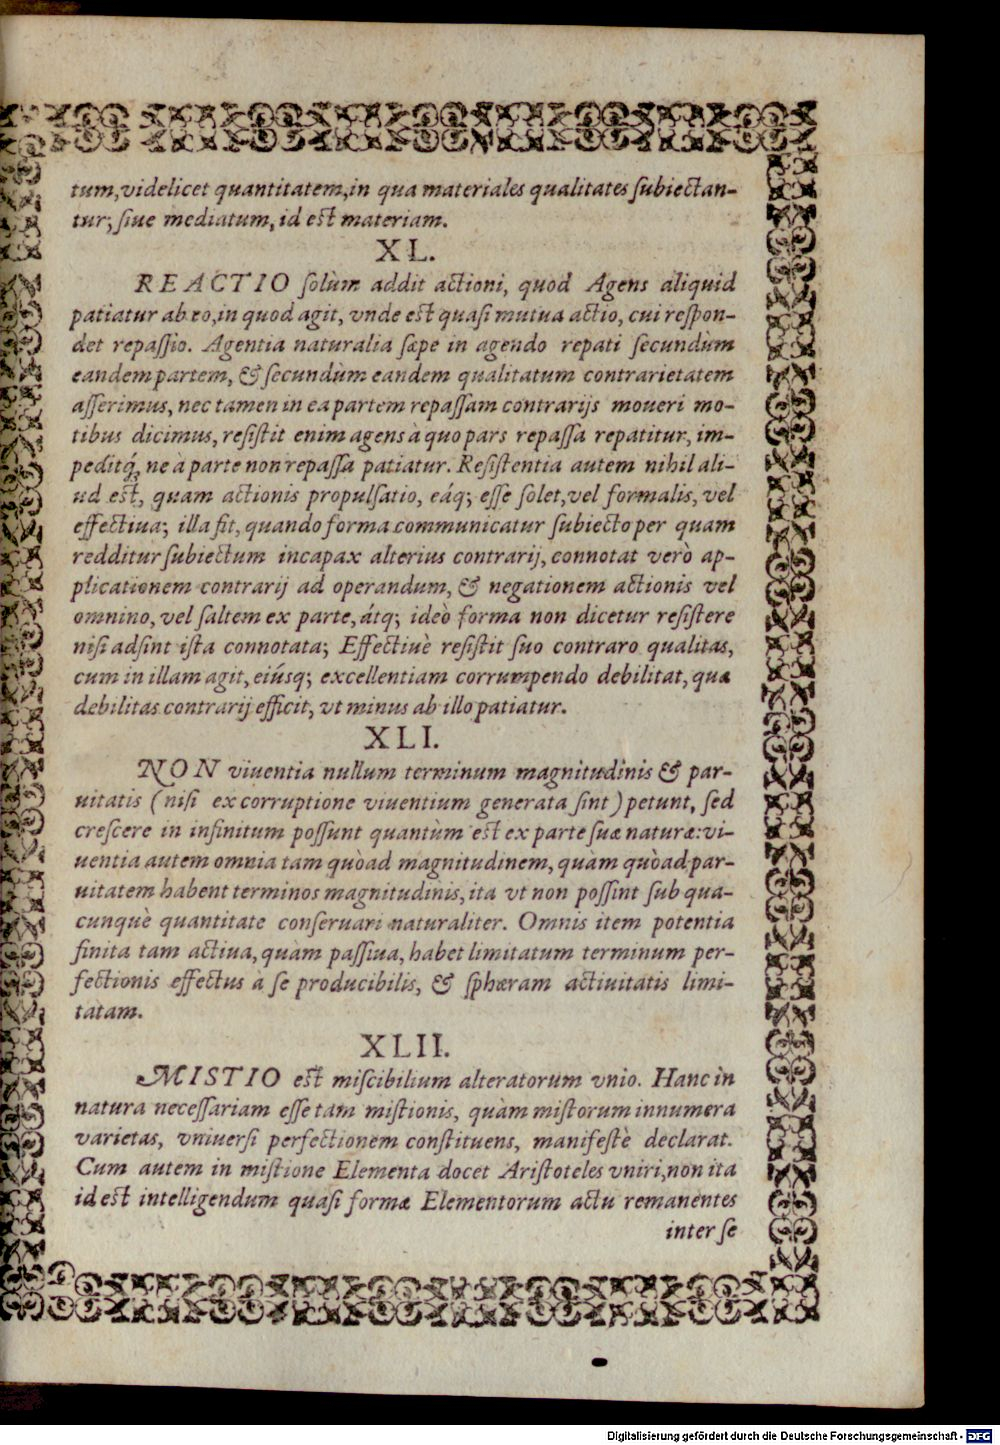 tum, videlicet quantitatem, in qua materiales qualitates ſubiectan-
tur; ſiue mediatum, id eſt materiam.
XL.
REACTIO ſolùm addit actioni, quod Agens aliquid
patiatur ab eo, in quod agit, vnde eſt quaſi mutua actio, cui reſpon-
det repaſſio. Agentia naturalia ſæpe in agendo repati ſecundùm
eandem partem, & ſecundùm eandem qualitatum contrarietatem
aſſerimus, nec tamen in ea partem repaſſam contrarijs moueri mo-
tibus dicimus, reſiſtit enim agens à quo pars repaſſa repatitur, im-
peditq́, ne à parte non repaſſa patiatur. Reſiſtentia autem nihil ali-
ud eſt, quam actionis propulſatio, eáq; eſſe ſolet, vel formalis, vel
effectiua; illa fit, quando forma communicatur ſubiecto per quam
redditur ſubiectum incapax alterius contrarij, connotat verò ap-
plicationem contrarij ad operandum, & negationem actionis vel
omnino, vel ſaltem ex parte, átq; ideò forma non dicetur reſiſtere
niſi adſint iſta connotata; Effectiuè reſiſtit ſuo contraro qualitas,
cum in illam agit, eiúsq; excellentiam corrumpendo debilitat, quæ
debilitas contrarij efficit, vt minus ab illo patiatur.
XLI.
NON viuentia nullum terminum magnitudinis & par-
uitatis (niſi ex corruptione viuentium generata ſint) petunt, ſed
creſcere in infinitum poſſunt quantùm eſt ex parte ſuæ naturæ: vi-
uentia autem omnia tam quòad magnitudinem, quàm quòad par-
uitatem habent terminos magnitudinis, ita vt non poſſint ſub qua-
cunquè quantitate conſeruari naturaliter. Omnis item potentia
finita tam actiua, quàm paſſiua, habet limitatum terminum per-
fectionis effectus à ſe producibilis, & ſphæram actiuitatis limi-
tatam.
XLII.
MISTIO eſt miſcibilium alteratorum vnio. Hanc in
natura neceſſariam eſſe tam miſtionis, quàm miſtorum innumera
varietas, vniuerſi perfectionem conſtituens, manifeſtè declarat.
Cum autem in miſtione Elementa docet Ariſtoteles vniri, non ita
id eſt intelligendum quaſi formæ Elementorum actu remanentes
inter ſe
Digitalisierung gefördert durch die Deutsche Forschungsgemeinschaft - DFG